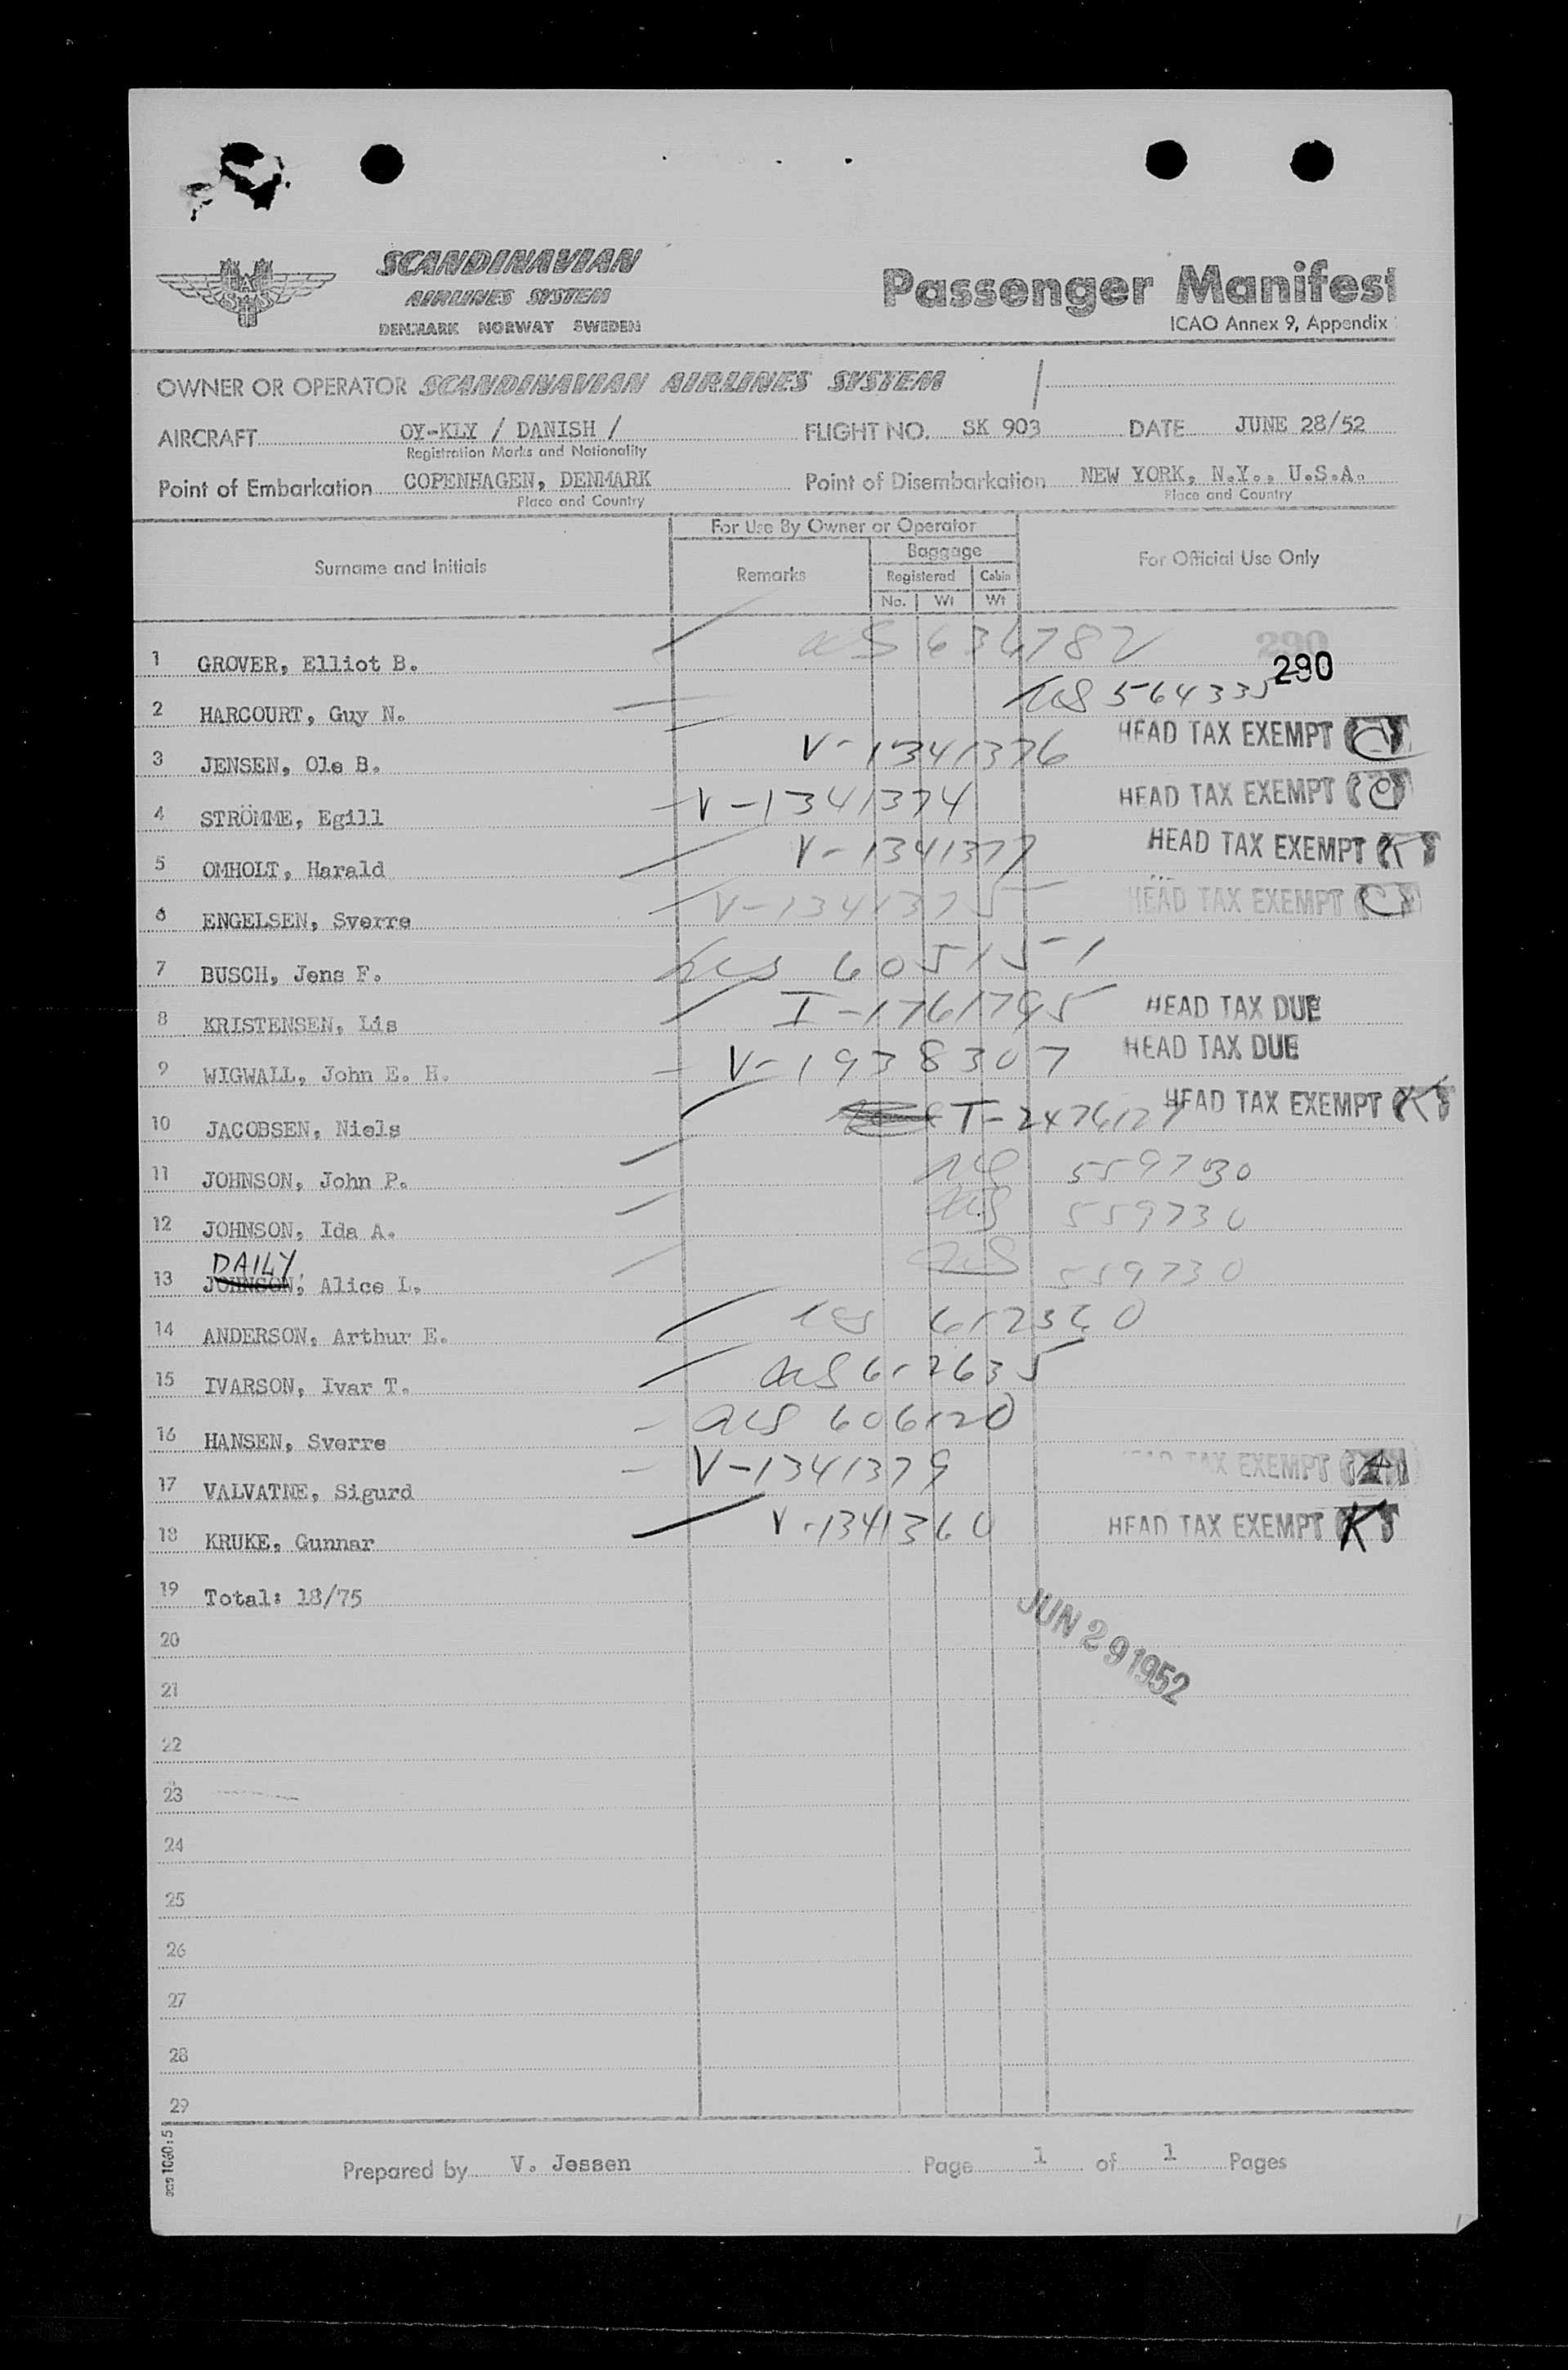 SCANDINAVIAN
AIRLINES SYSTEM
DENMARK NORWAY SWEDEN
SAS
Passenger Manifest
ICAO Annex 9, Appendix
OWNER OR OPERATOR SCANDINAVIAN AIRLINES SYSTEM
AIRCRAFT OY-KLY / DANISH / FLIGHT NO. SK 903 DATE JUNE 28/52
Registration Marks and Nationality
Point of Embarkation COPENHAGEN, DENMARK Point of Disembarkation NEW YORK, N.Y., U.S.A.
Place and Country Place and Country
For Use By Owner or Operator
Surname and Initials Remarks Baggage For Official Use Only
Registered Cabin
No. Wt Wt
290
1 GROVER, Elliot B. 634782 290
2 HARCOURT, Guy N. 564335
3 JENSEN, Ole B. V-1341376 HEAD TAX EXEMPT
4 STRÖMME, Egill V-1341374 HEAD TAX EXEMPT
5 OMHOLT, Harald V-1341377 HEAD TAX EXEMPT
6 ENGELSEN, Sverre V-1341375 HEAD TAX EXEMPT
7 BUSCH, Jens F. 605151
8 KRISTENSEN, Lis I-1761795 HEAD TAX DUE
9 WIGWALL, John E. H. V-1938307 HEAD TAX DUE
10 JACOBSEN, Niels HEAD TAX EXEMPT
11 JOHNSON, John P. 559730
12 JOHNSON, Ida A. 559730
DAILY
13 JOHNSON, Alice L. 559730
14 ANDERSON, Arthur E.
15 IVARSON, Ivar T. 612635
16 HANSEN, Sverre 606120
17 VALVATNE, Sigurd V-1341379 HEAD TAX EXEMPT
18 KRUKE, Gunnar V-1341360 HEAD TAX EXEMPT
19 Total: 18/75
JUN 29 1952
20
21
22
23
24
25
26
27
28
29
Prepared by V. Jessen Page 1 of 1 Pages